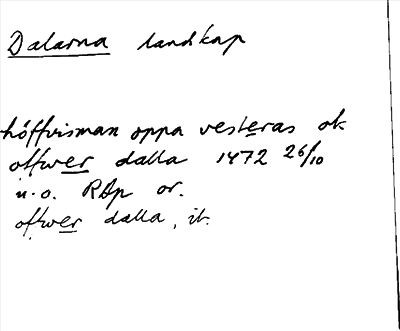 Dalarna landskap
höffvisman oppa vesteras ok
offwer dalla 1472 26/10
u.o. RAp or.
offwer dalla, ib.